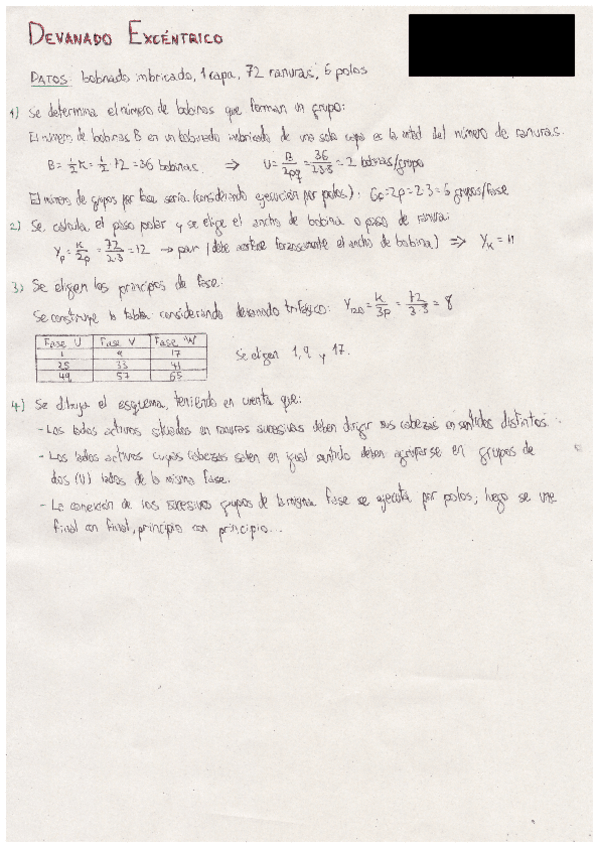 DEVANADO EXCÉNTRICO
DATOS: bobinado imbricado, 1 capa, 72 ranuras, 6 polos
1) Se determina el número de bobinas que forman un grupo:
El número de bobinas B en un bobinado imbricado de una sola capa es la mitad del número de ranuras.
B = 1/2 K = 1/2 · 72 = 36 bobinas. ⇒ U = B/2pq = 36/2·3·3 = 2 bobinas/grupo
El número de grupos por fase sería (considerando ejecución por polos): GF = 2p = 2·3 = 6 grupos/fase
2) Se calcula el paso polar y se elige el ancho de bobina o paso de ranura:
Yp = K/2p = 72/2·3 = 12 → par (debe acortarse forzosamente el ancho de bobina) ⇒ YK = 11
3) Se eligen los principios de fase:
Se construye la tabla considerando devanado trifásico: Y120 = K/3p = 72/3·3 = 8
Fase U Fase V Fase W
1 9 17
25 33 41
49 57 65
Se eligen 1, 9 y 17.
4) Se dibuja el esquema, teniendo en cuenta que:
- Los lados activos situados en ranuras sucesivas deben dirigir sus cabezas en sentidos distintos.
- Los lados activos cuyas cabezas salen en igual sentido deben agruparse en grupos de
dos (U) lados de la misma fase.
- La conexión de los sucesivos grupos de la misma fase se ejecuta por polos; luego se une
final con final, principio con principio...